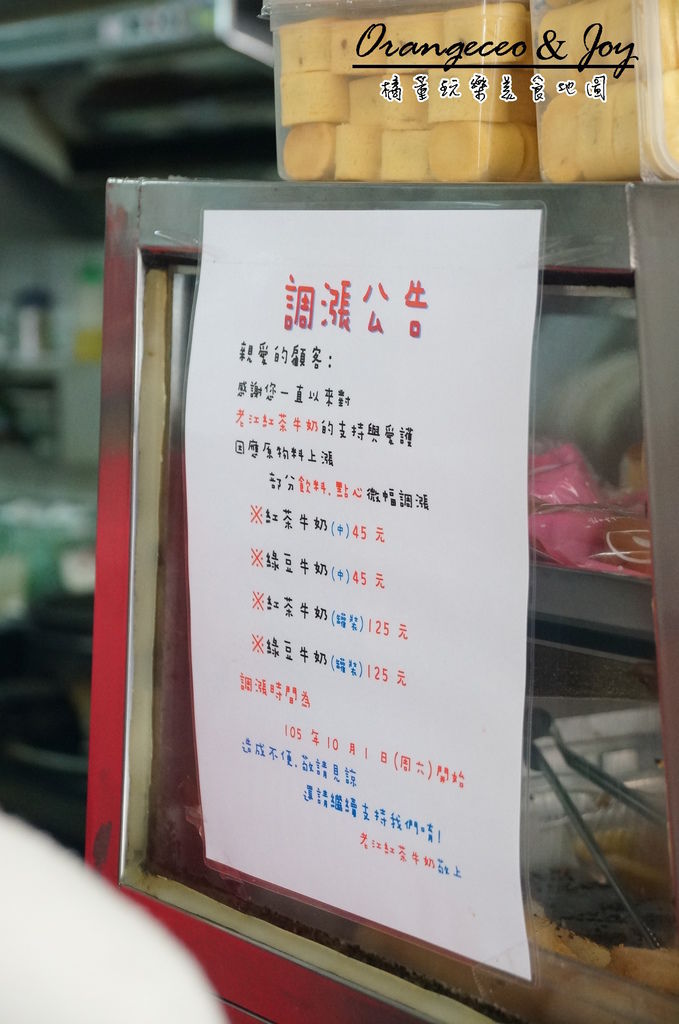 Orangeceo & Joy
橘董玩樂美食地圖
調漲公告
親愛的顧客：
感謝您一直以來對
老江紅茶牛奶的支持與愛護
因應原物料上漲
部分飲料、點心微幅調漲
※紅茶牛奶(中)45 元
※綠豆牛奶(中)45 元
※紅茶牛奶(罐裝)125 元
※綠豆牛奶(罐裝)125 元
調漲時間為
105 年 10 月 1 日(周六)開始
造成不便、敬請見諒
還請繼續支持我們唷!
老江紅茶牛奶敬上